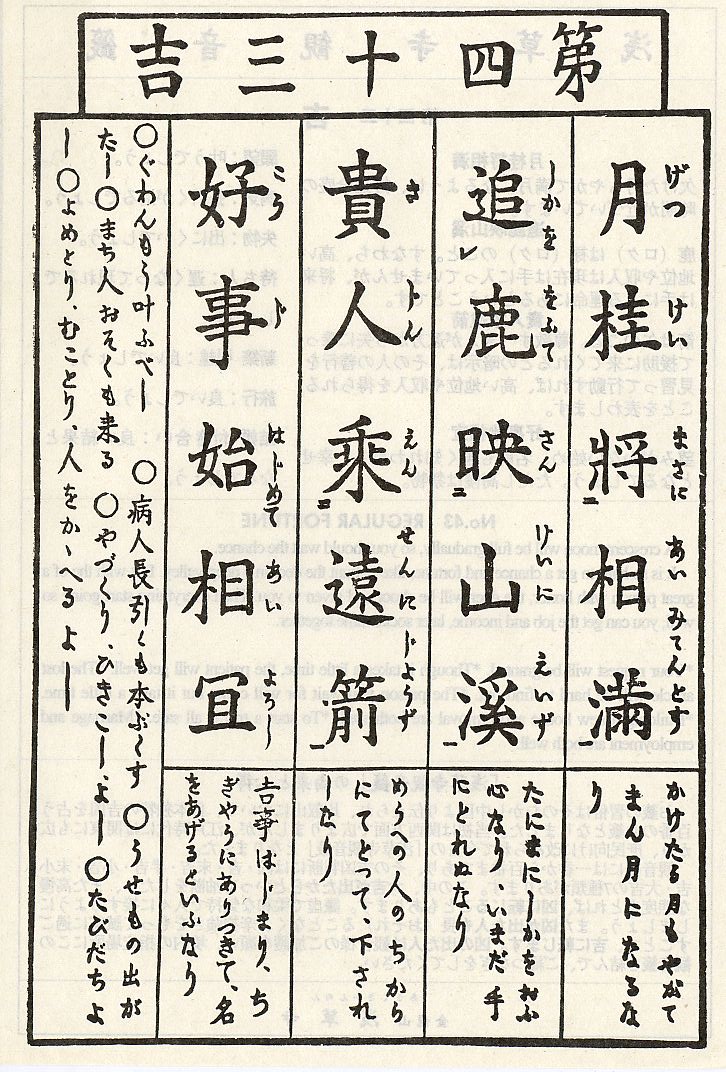 第四十三吉
げつ けい まさに あい みてんとす
月桂將二相滿一
かけたる月もやがて
まん月になるな
り
しかを をふて さん けいに えいず
追レ鹿映二山溪一
たにまにしかをおふ
心なり、いまだ手
にとれぬなり
き じん えん せんに じようず
貴人乘二遠箭一
めうへの人のちから
にてすくつて、下され
しなり
こう じ はじめて あい よろし
好事始相宜
吉事はじまり、ち
ぎやうにありつきて、名
をあげるといふなり
○ぐわんもう叶ふべし ○病人長引くも本ぷくす ○うせもの出が
たし○まち人おそくも来る ○やづくり、ひきこし、よし○たびだちよ
し○よめとり、むことり、人をかゝへるよし